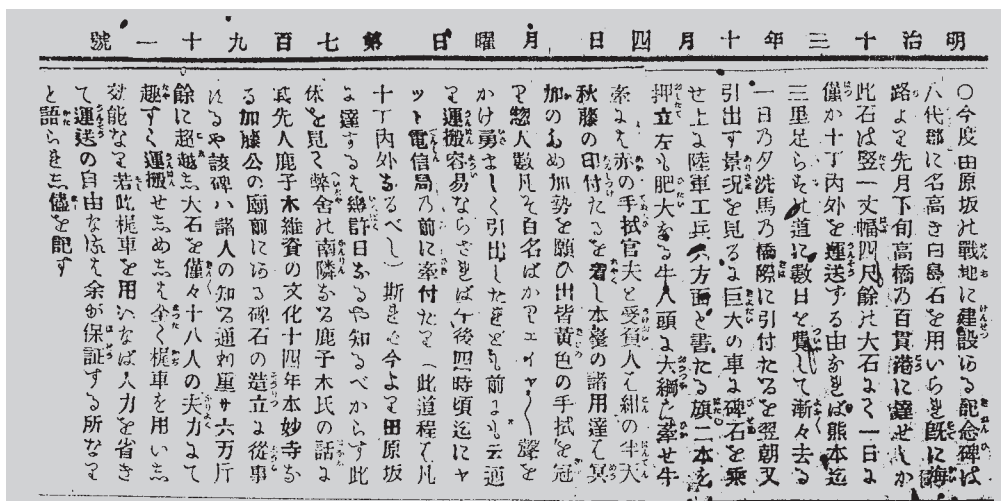 明治十三年十月四日 月曜日 第七百九十一號
○今度田原坂の戰地に建設ある記念碑は
八代郡に名高き白島石を用いられ既に海
路より先月下旬高橋乃百貫港に達せしが
此石は竪一丈幅四尺餘の大石にて一日に
僅か十丁內外を運送する由なれば熊本迄
三里足らずの道に數日を費して漸々去る
一日乃夕洗馬乃橋際に引付たるを翌朝又
引出す景況を見るに巨大の車に碑石を乘
せ上に陸軍工兵第 方面と書たる旗二本を
押立左も肥大なる牛八頭に大綱を牽せ牛
牽には赤の手拭官夫と受負人には紺の半天
秋藤の印付たるを着し本縣の諸用達も冥
加のため加勢を願ひ出皆黃色の手拭を冠
り惣人數凡そ百名ばかりエイヤ〳〵聲を
かけ勇ましく引出したれども前にも云通
り運搬容易ならざれば午後四時頃迄にヤ
ット電信局乃前に牽付たり（此道程て凡
十丁內外なるべし）斯れば今より田原坂
に達するは幾許日なるや知るべからず此
休を見て弊舍の南隣なる鹿子木氏の話に
其先人鹿子木維資の文化十四年本妙寺な
る加藤公の廟前にある碑石の造立に從事
せるや該碑ハ諸人の知る通り重サ六万斤
餘に超越し大石を僅々十八人の夫力にて
趣すく運搬せしめしは全く梶車を用いし
効能なり若此梶車を用いなば人力を省き
て運送の自由なるは余が保証する所なり
と語られし儘を記す